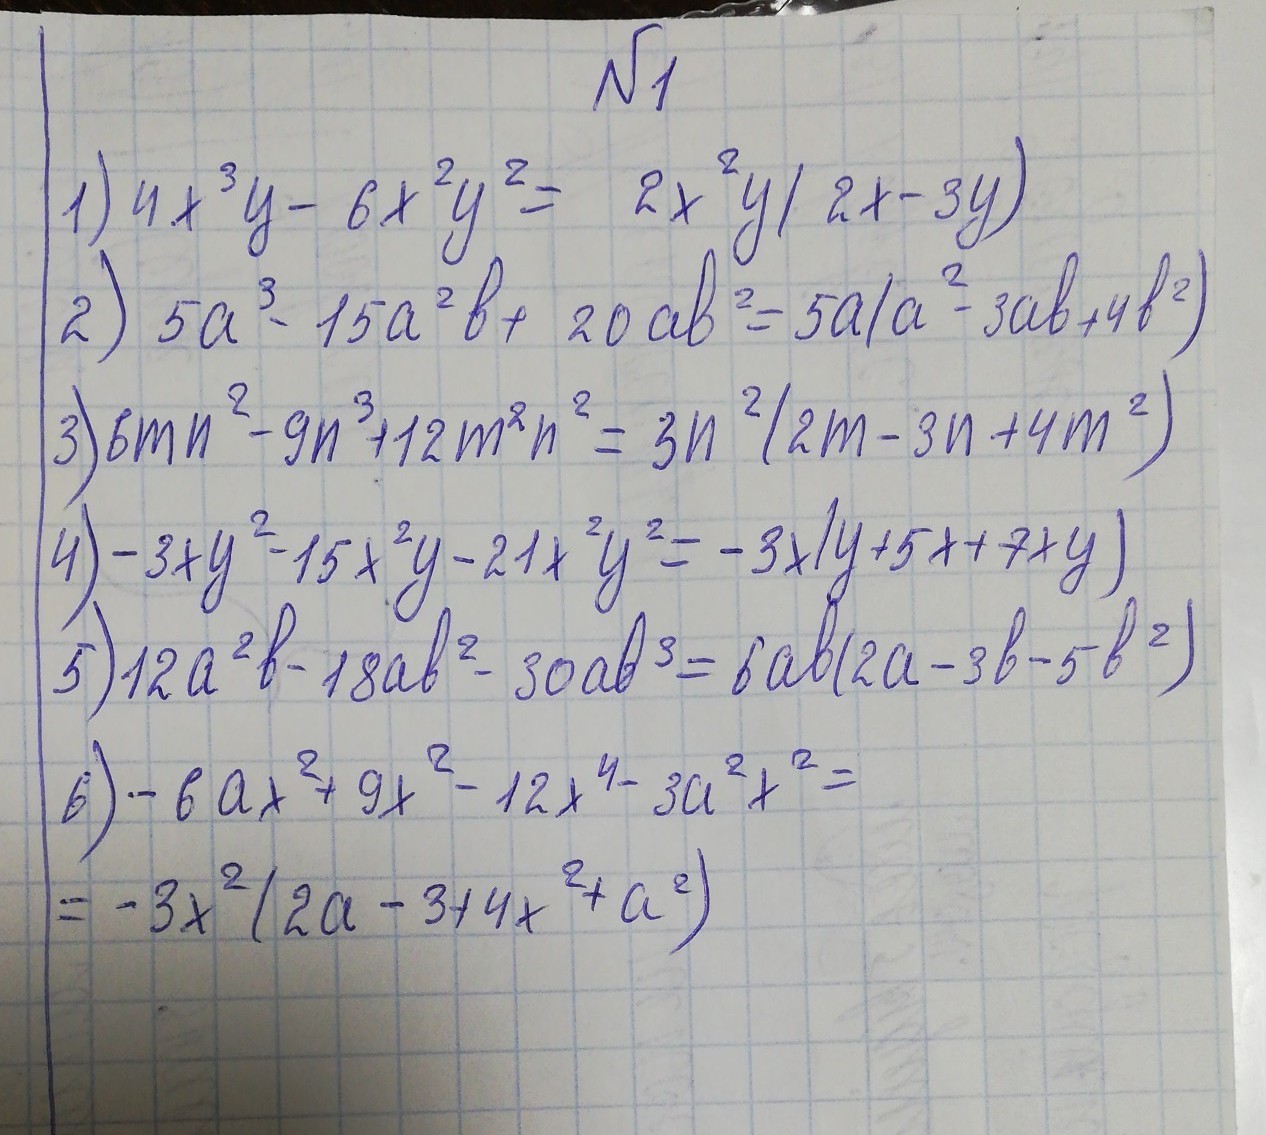 №1
1) 4x³y - 6x²y² = 2x²y(2x - 3y)
2) 5a³ - 15a²b + 20ab² = 5a(a² - 3ab + 4b²)
3) 6mn² - 9n³ + 12m²n² = 3n²(2m - 3n + 4m²)
4) -3xy² - 15x²y - 21x²y² = -3x(y + 5x + 7xy)
5) 12a²b - 18ab² - 30ab³ = 6ab(2a - 3b - 5b²)
6) - 6ax² + 9x² - 12x⁴ - 3a²x² =
= -3x²(2a - 3 + 4x² + a²)